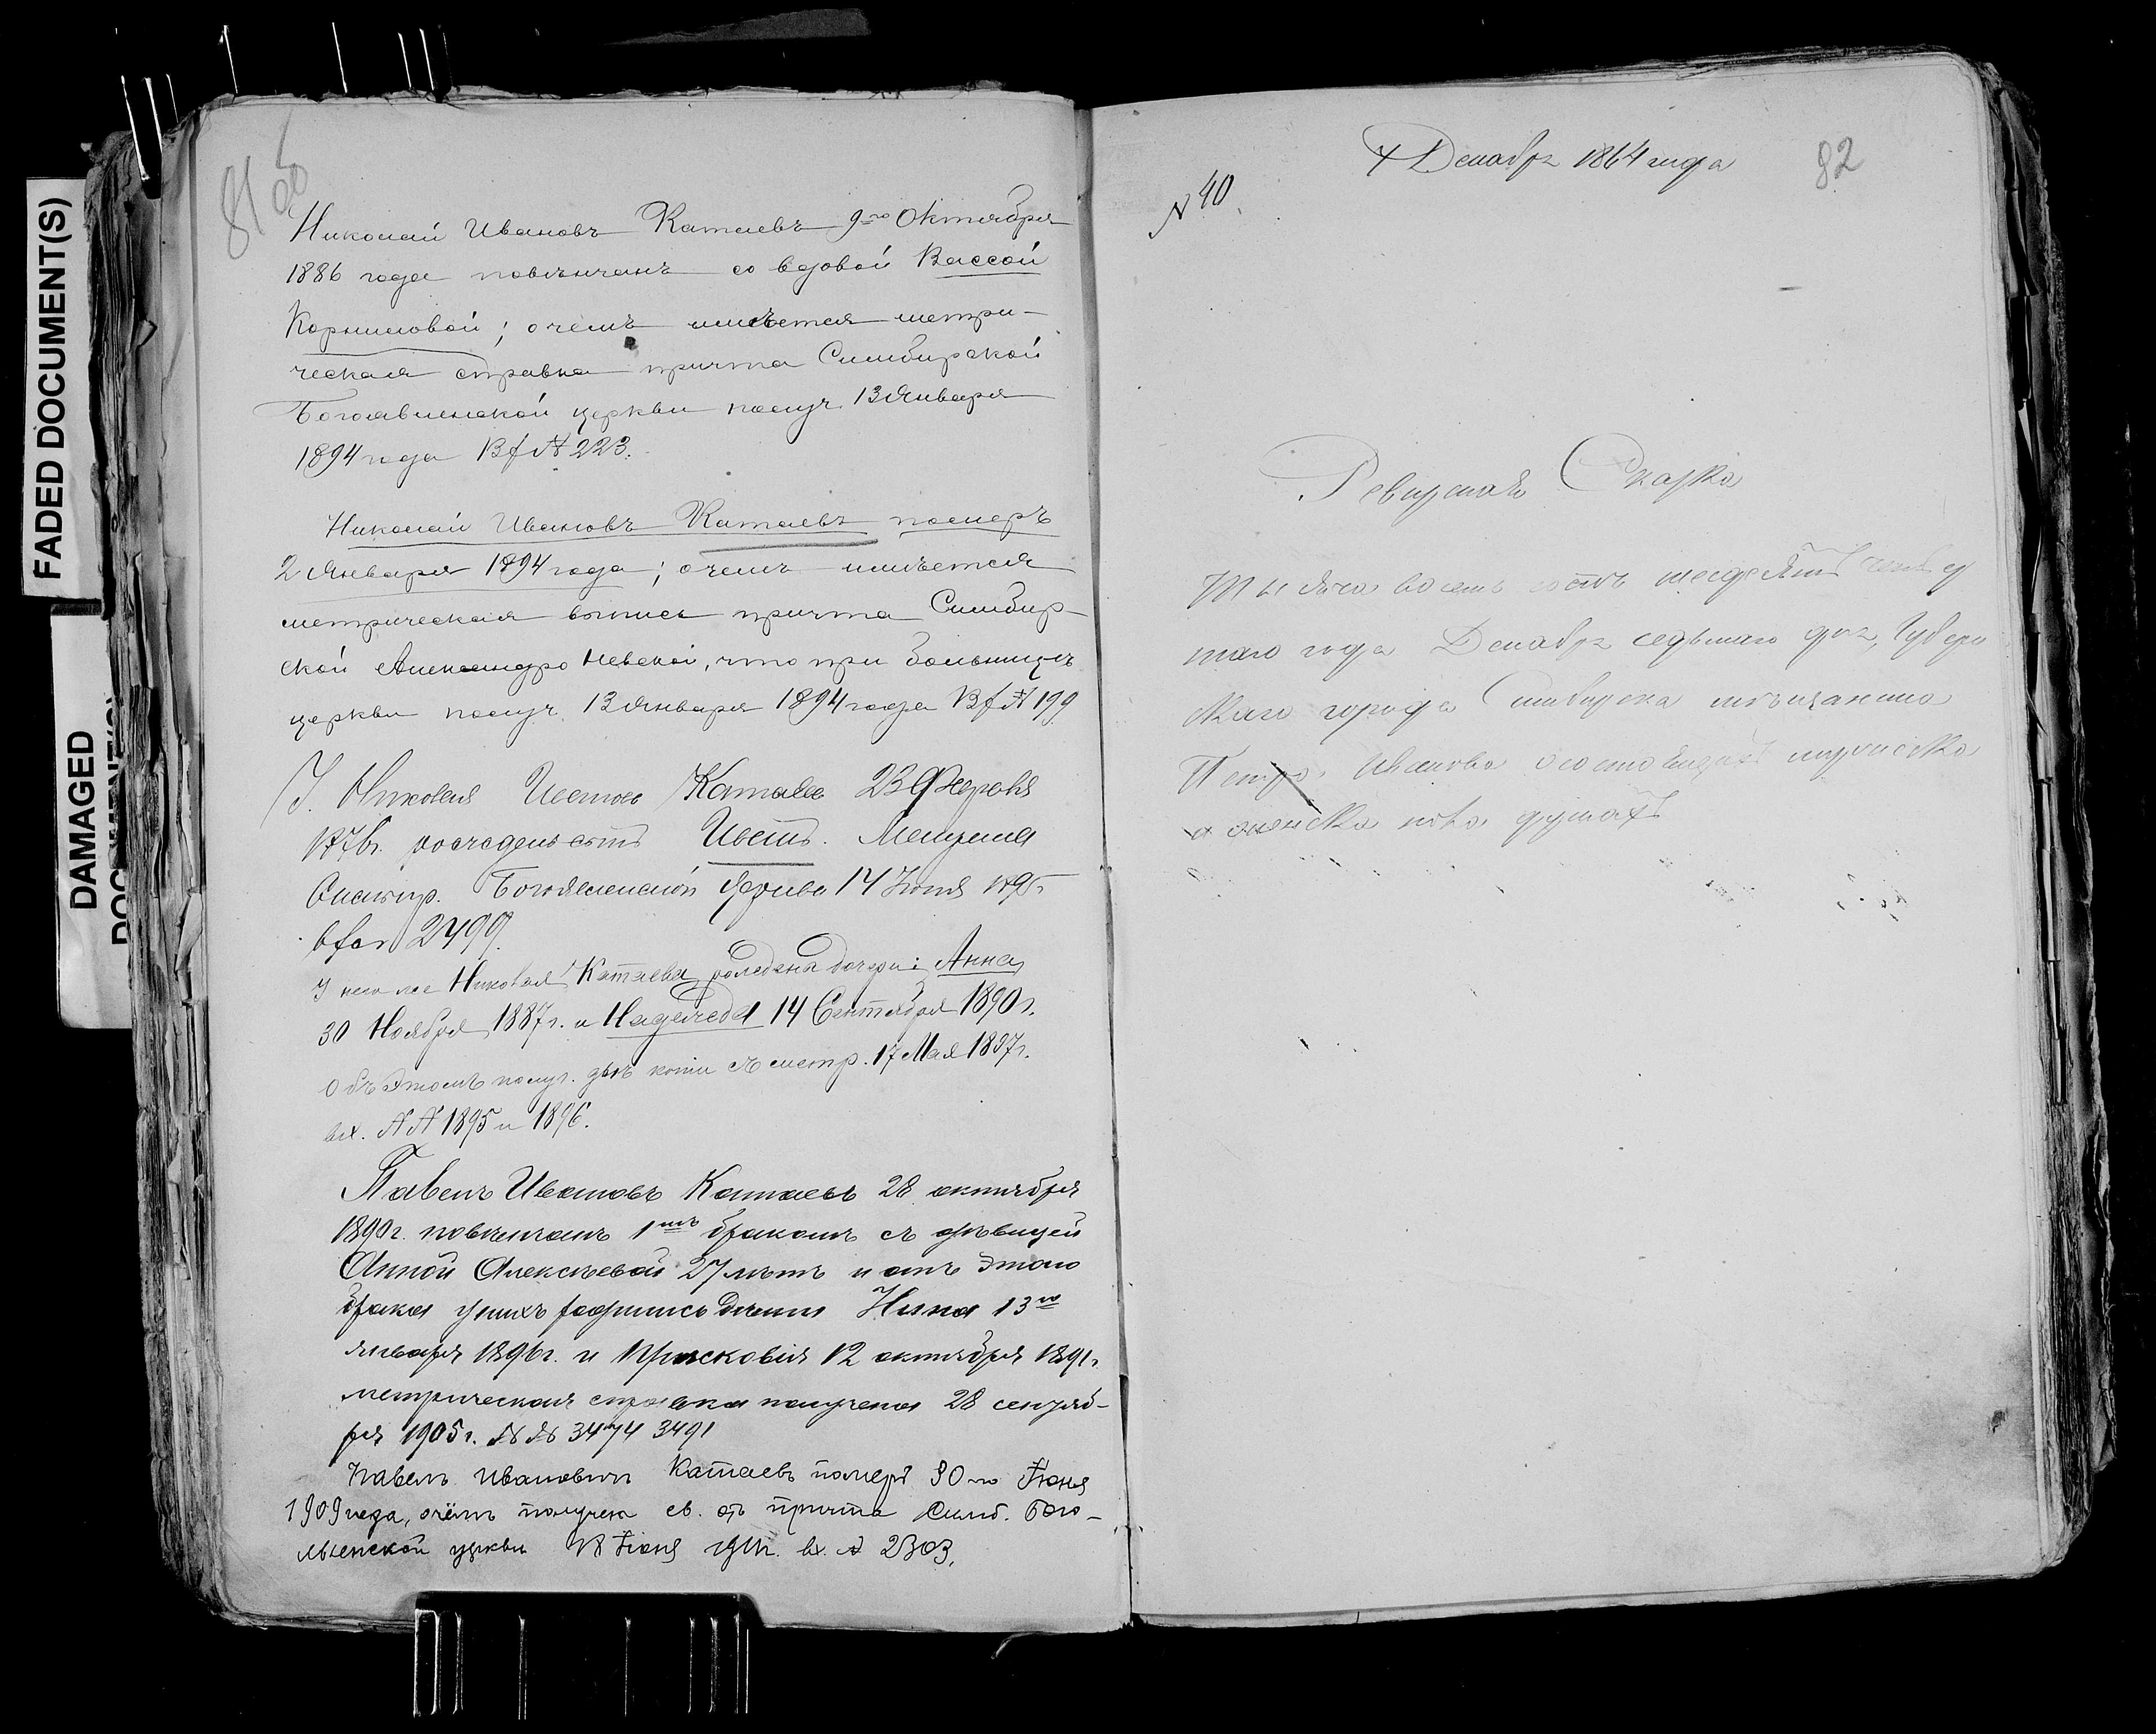 FADED DOCUMENT(S)
DAMAGED
81 об
Николай Ивановъ Катаевъ 9го Октября
1886 года повѣнчанъ со вдовой Вассой
Корниловой; о чемъ имѣется метри-
ческая справка причта Симбирской
Богоявленской церкви получ. 13 Января
1894 года № 223.
Николай Ивановъ Катаевъ померъ
2 Января 1894 года; о чемъ имѣется
метрическая выпись причта Симбир-
ской Александро Невской, что при больницѣ
церкви получ. 13 Января 1894 года № 199
У Николая Катаева 23 Февраля
Симбир. Богоявленской Церкви 14 Іюня
2499
У него же Николая Катаева рождены дочери: Анна
30 Ноября 1887 г. и Надежда 14 Сентября 1890 г.
Объ этомъ получ. двѣ копіи съ метр. 17 Мая 1897 г.
вх. №№ 1895 и 1896.
Павелъ Ивановъ Катаевъ 28 октября
1890 г. повѣнчанъ 1мъ бракомъ съ дѣвицей
Анной Алексѣевой 27 лѣтъ и отъ этого
брака у нихъ родились Нина 13го
января 1896 г. и Прасковія 12 октября 1891 г.
метрическая справка получена 28 сентяб-
ря 1905 г. №№ 3474 3491
Павелъ Ивановичъ Катаевъ померъ 30го Іюня
1909 года, о чёмъ получен св. отъ причта Симб. Бого-
явленской церкви Іюня вх. № 2303.
7 Декабря 1864 года
82
№ 40.
Ревизская Сказка
Тысяча восемь сотъ шестьдесятъ четвер
таго года Декабря седьмаго дня, Губерн
скаго города Симбирска мѣщанина
Петра Иванова о состоящихъ мужеска
и женска пола душахъ